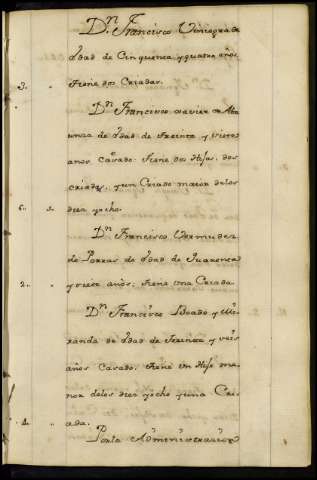 Dn. Francisco
edad de Cinquenta y quatro años
3. tiene dos Criadas.
Dn. Francisco Xavier de
de edad de treinta y
anos Casado tiene dos Hijas, dos
criadas, y un Criado maior de los
6. diez y ocho.
Dn. Francisco Vermudez
de Porras de edad de Quarenta
2. y siete años, tiene una Criada
Dn. Francisco Boado y
de edad de treinta y seis
años Casado, tiene un Hijo me
nor de los diez y ocho y una Cri
4. ada.
Por la Administracion